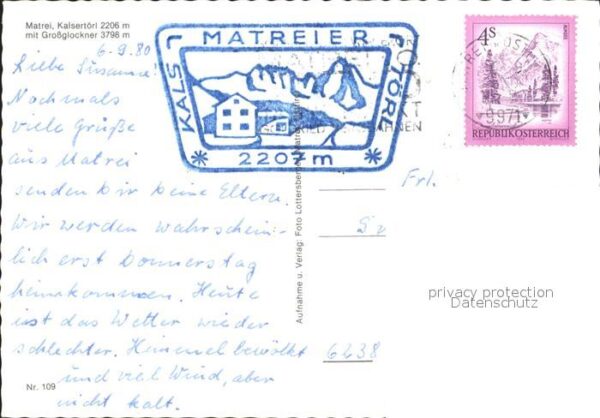 Matrei, Kalsertörl 2206 m
mit Großglockner 3798 m
6-9.80
Liebe Susanna!
Nochmals
viele Grüße
aus Matrei
senden Dir Deine Eltern.
Wir werden wahrschein-
lich erst Donnerstag
heimkommen. Heute
ist das Wetter wieder
schlechter. Himmel bewölkt
und viel Wind, aber
nicht kalt.
Nr. 109
KALS MATREIER TÖRL
2207m
Aufnahme u. Verlag: Foto Lottersberger, Matrei
4s
9971
REPUBLIK ÖSTERREICH
Frl.
privacy protection
Datenschutz
6438